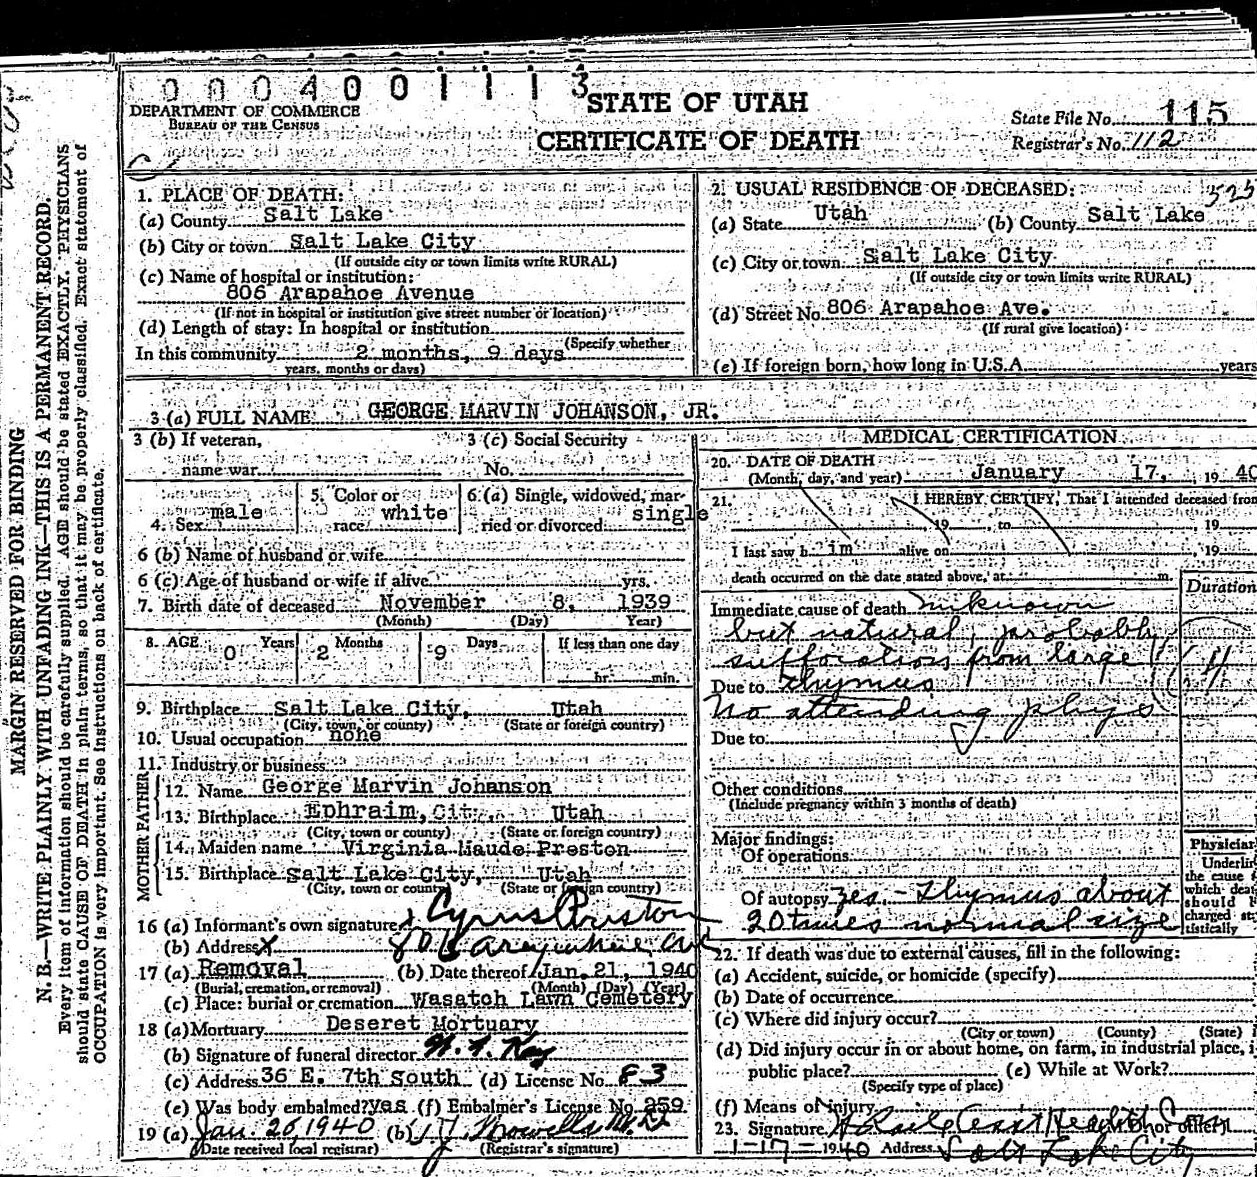 0004001113
DEPARTMENT OF COMMERCE
BUREAU OF THE CENSUS
STATE OF UTAH
CERTIFICATE OF DEATH
State File No. 115
Registrar's No. 112
MARGIN RESERVED FOR BINDING
N. B.—WRITE PLAINLY WITH UNFADING INK—THIS IS A PERMANENT RECORD.
Every item of information should be carefully supplied. AGE should be stated EXACTLY. PHYSICIANS
should state CAUSE OF DEATH in plain terms, so that it may be properly classified. Exact statement of
OCCUPATION is very important. See instructions on back of certificate.
1. PLACE OF DEATH:
(a) County Salt Lake
(b) City or town Salt Lake City
(If outside city or town limits write RURAL)
(c) Name of hospital or institution:
806 Arapahoe Avenue
(If not in hospital or institution give street number or location)
(d) Length of stay: In hospital or institution
(Specify whether
In this community 2 months, 9 days
years, months or days)
2. USUAL RESIDENCE OF DECEASED:
(a) State Utah (b) County Salt Lake
(c) City or town Salt Lake City
(If outside city or town limits write RURAL)
(d) Street No. 806 Arapahoe Ave.
(If rural give location)
(e) If foreign born, how long in U.S.A. years
3 (a) FULL NAME GEORGE MARVIN JOHANSON, JR.
3 (b) If veteran,
name war
3 (c) Social Security
No.
4. Sex male
5. Color or
race white
6 (a) Single, widowed, mar-
ried or divorced single
6 (b) Name of husband or wife
6 (c) Age of husband or wife if alive yrs.
7. Birth date of deceased November 8, 1939
(Month) (Day) Year)
8. AGE 0 Years 2 Months 9 Days If less than one day
hr. min.
9. Birthplace Salt Lake City, Utah
(City, town, or county) (State or foreign country)
10. Usual occupation none
11. Industry or business
MOTHER FATHER
12. Name George Marvin Johanson
13. Birthplace Ephraim, City, Utah
(City, town or county) (State or foreign country)
14. Maiden name Virginia Maude Preston
15. Birthplace Salt Lake City, Utah
(City, town or county) (State or foreign country)
16 (a) Informant's own signature Cyrus Preston
(b) Address X 806
17 (a) Removal (b) Date thereof Jan. 21, 1940
(Burial, cremation, or removal) (Month) (Day) (Year)
(c) Place: burial or cremation Wasatch Lawn Cemetery
18 (a) Mortuary Deseret Mortuary
(b) Signature of funeral director
(c) Address 36 E. 7th South (d) License No. 83
(e) Was body embalmed? yes (f) Embalmer's License No. 259
19 (a) Jan. 20, 1940 (b)
(Date received local registrar) (Registrar's signature)
MEDICAL CERTIFICATION
20. DATE OF DEATH
(Month, day, and year) January 17, 1940
21. I HEREBY CERTIFY, That I attended deceased from
19 , to 19
I last saw h im alive on , 19
death occurred on the date stated above, at m.
Duration
Immediate cause of death unknown
but natural, probably
suffocation from large
Due to thymus
No attending phys
Due to:
Other conditions
(Include pregnancy within 3 months of death)
Major findings:
Of operations
Of autopsy yes - thymus about
20 times normal size
Physician
Underline
the cause
which death
should
charged sta-
tistically
22. If death was due to external causes, fill in the following:
(a) Accident, suicide, or homicide (specify)
(b) Date of occurrence
(c) Where did injury occur?
(City or town) (County) (State)
(d) Did injury occur in or about home, on farm, in industrial place, i
public place? (e) While at Work?
(Specify type of place)
(f) Means of injury
23. Signature
1-17-1940 Address Salt Lake City